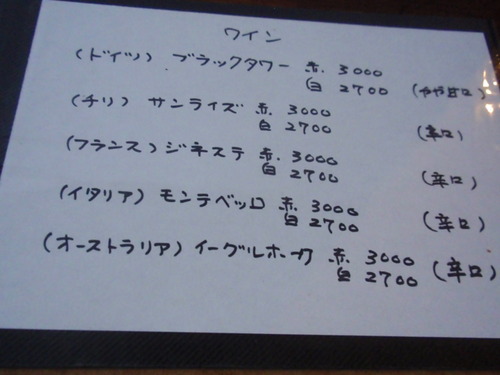 ワイン
(ドイツ) ブラックタワー 赤. 3000
白 2700 (やや甘口)
(チリ) サンライズ 赤. 3000
白 2700 (辛口)
(フランス) ジネステ 赤. 3000
白 2700 (辛口)
(イタリア) モンテベッロ 赤. 3000
白 2700 (辛口)
(オーストラリア) イーグルホーク 赤. 3000
白 2700 (辛口)